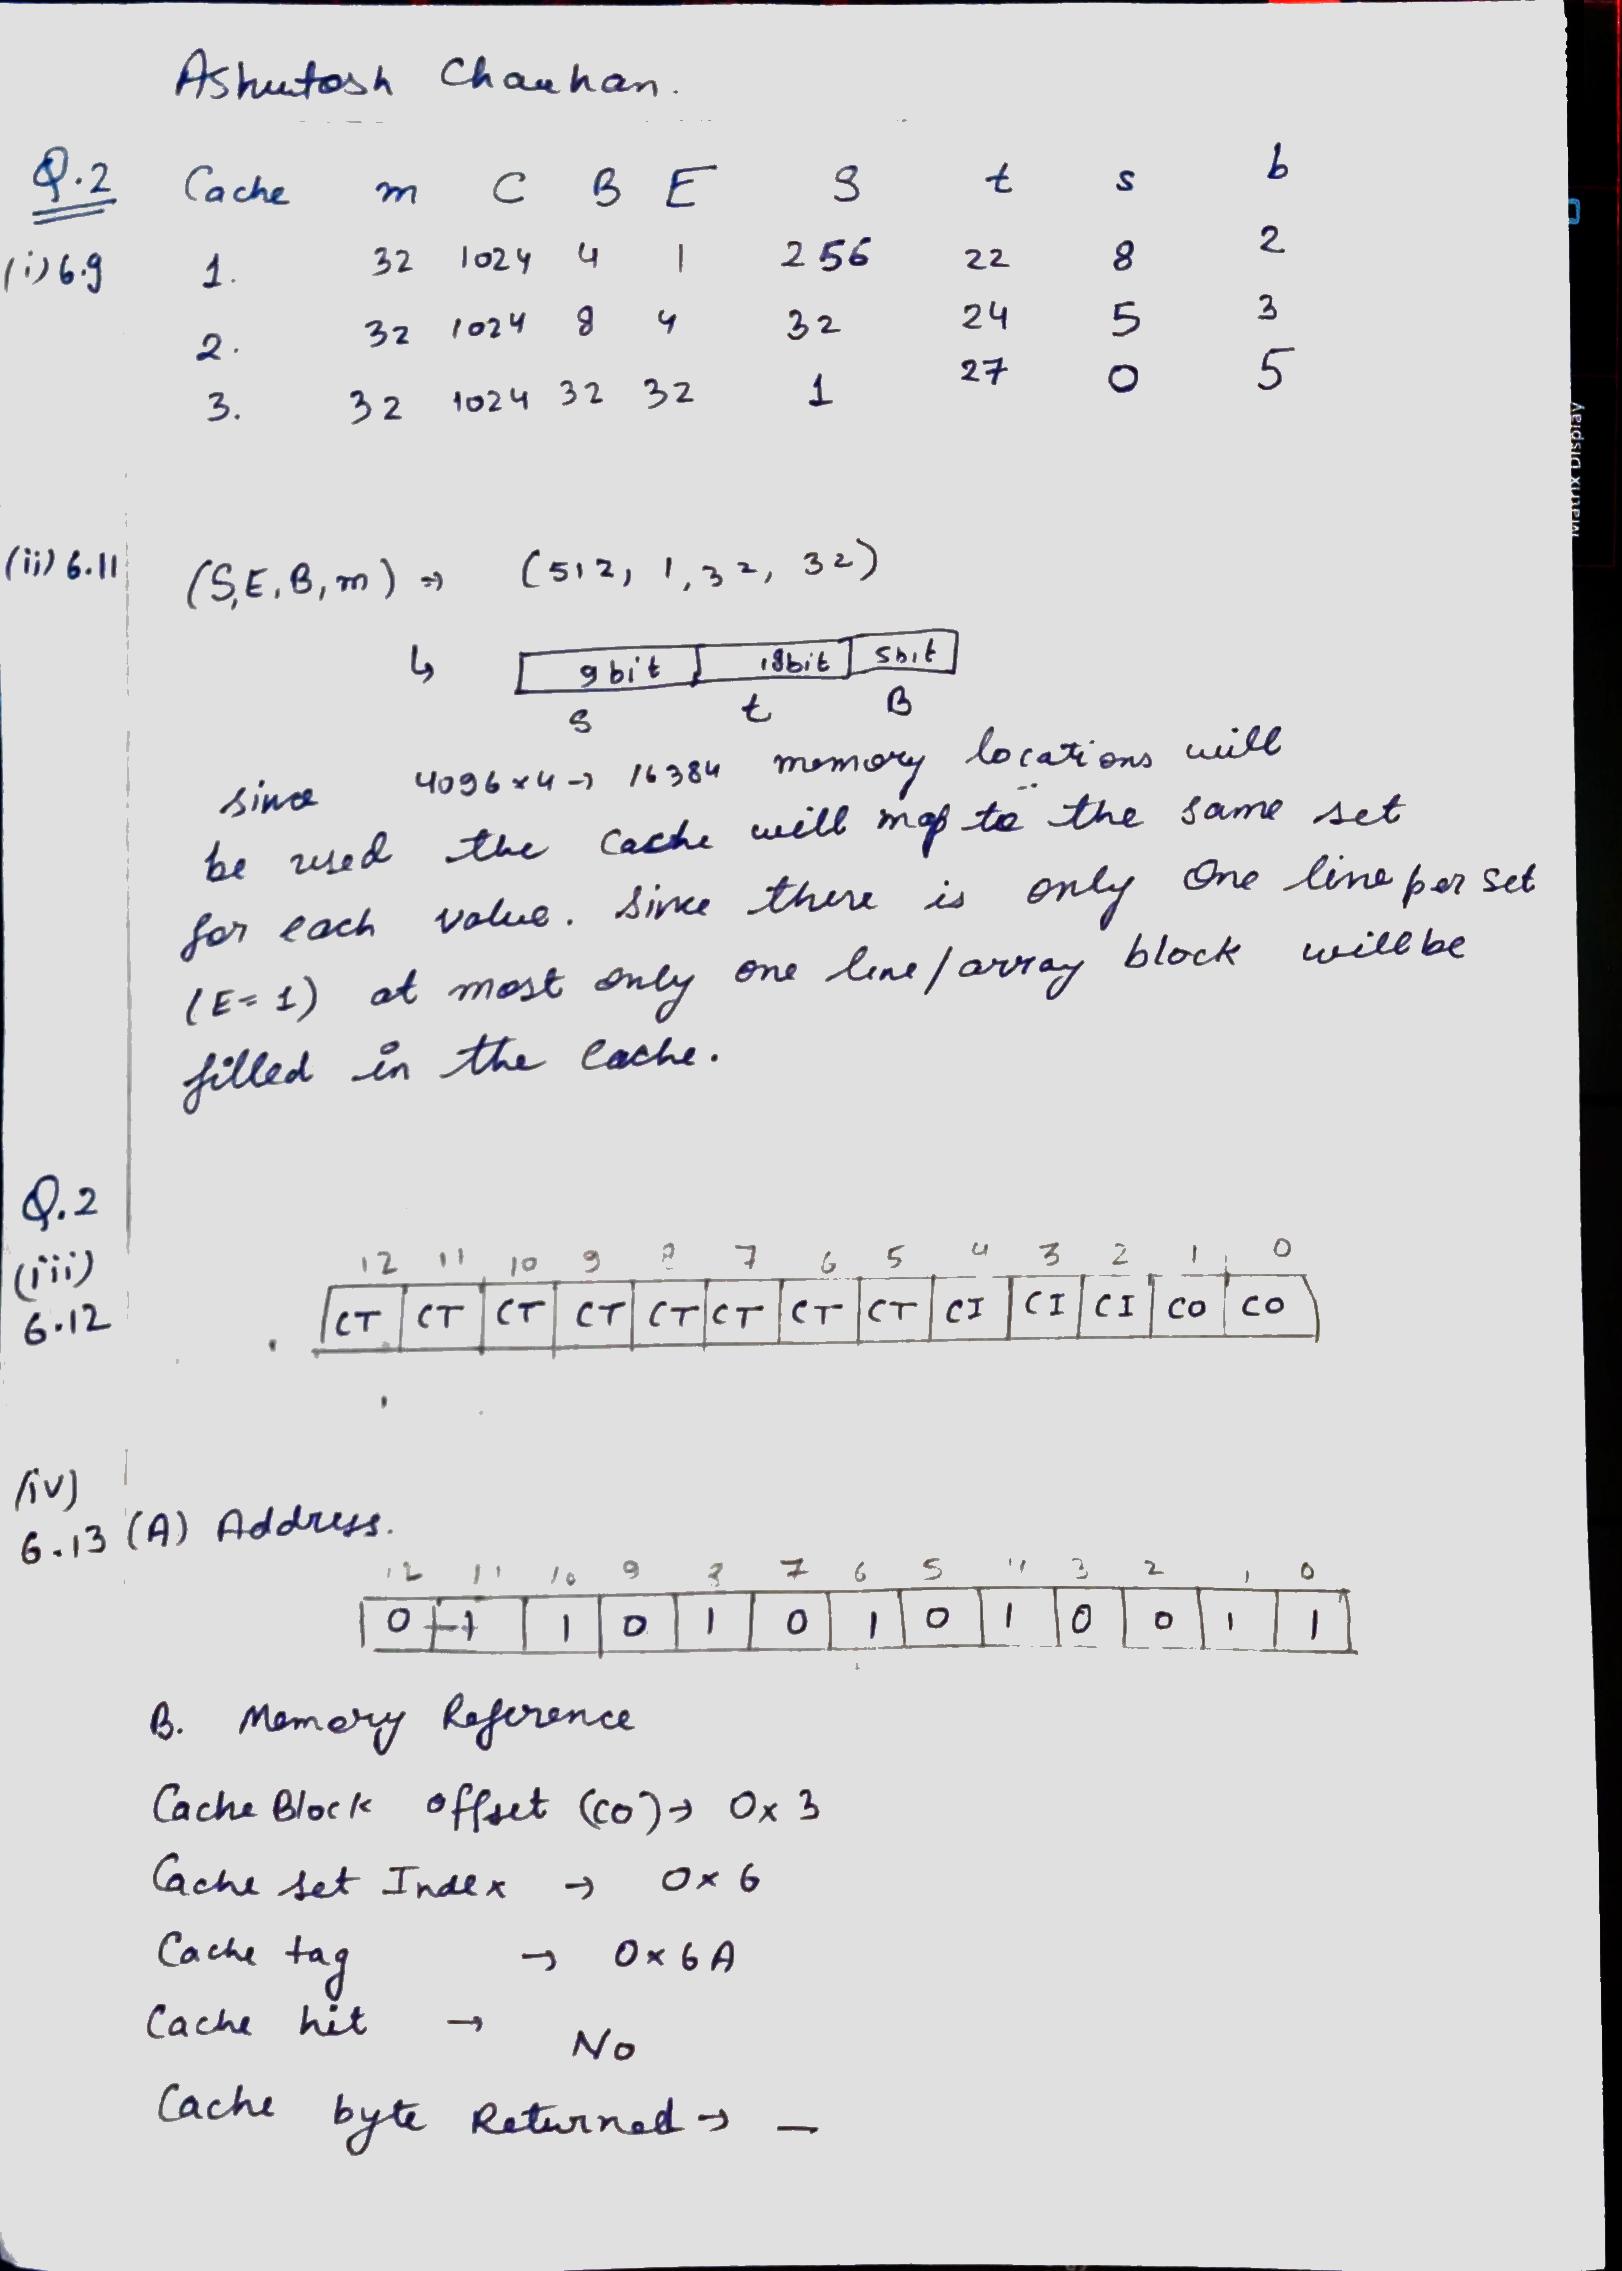 Ashutosh Chauhan.
Q.2 Cache m C B E S t s b
(i) 6.9 1. 32 1024 4 1 256 22 8 2
2. 32 1024 8 4 32 24 5 3
3. 32 1024 32 32 1 27 0 5
(ii) 6.11 (S,E,B,m) ⇒ (512, 1, 32, 32)
↳ 9bit 18bit 5bit
S t B
since 4096×4→ 16384 memory locations will
be used the Cache will map to the same set
for each value. Since there is only One line per set
(E=1) at most only one line/array block will be
filled in the Cache.
Q.2
(iii)
6.12
12 11 10 9 8 7 6 5 4 3 2 1 0
CT CT CT CT CT CT CT CT CI CI CI CO CO
(iv)
6.13 (A) Address.
12 11 10 9 8 7 6 5 4 3 2 1 0
0 1 1 0 1 0 1 0 1 0 0 1 1
B. Memory Reference
Cache Block offset (CO)→ 0x3
Cache set Index → 0x6
Cache tag → 0x6A
Cache hit → No
Cache byte Returned → —
Matrix Display